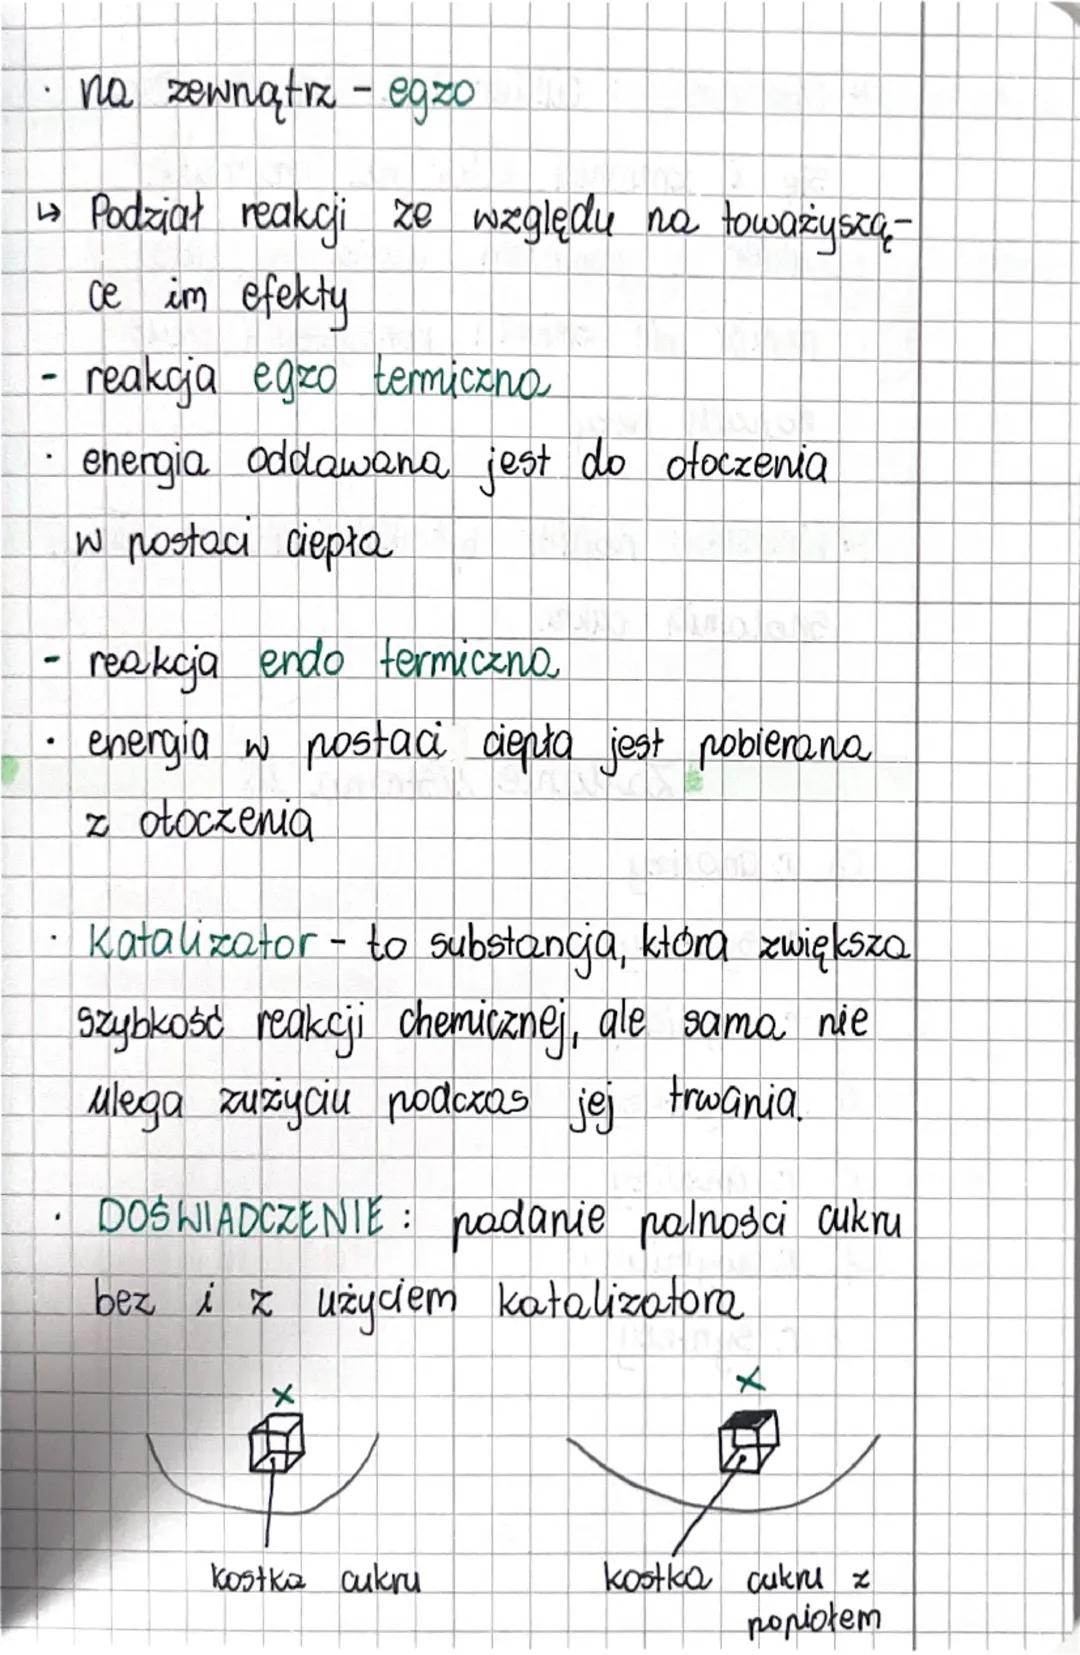 · na zewnątrz - egzo
↳ Podział reakcji ze względu na toważyszą-
ce im efekty
- reakcja egzo termiczna
· energia oddawana jest do otoczenia
w postaci ciepła
- reakcja endo termiczna
· energia w postaci ciepła jest pobierana
z otoczenia
· Katalizator - to substancja, która zwiększa
szybkość reakcji chemicznej, ale sama nie
ulega zużyciu podczas jej trwania.
· DOŚWIADCZENIE: padanie palności cukru
bez i z użyciem katalizatora
x x
kostka cukru kostka cukru z
popiołem